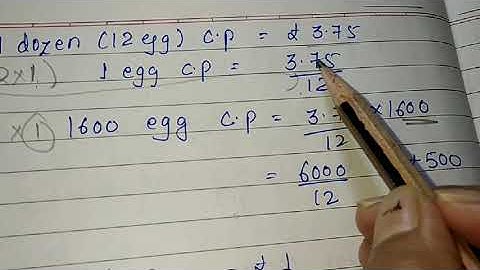 1 dozen (12 egg) C.P = ₹ 3.75
2×1) 1 egg C.P = 3.75/12
×1 1600 egg C.P = 3.7 /12 ×1600
= 6000/12 +500